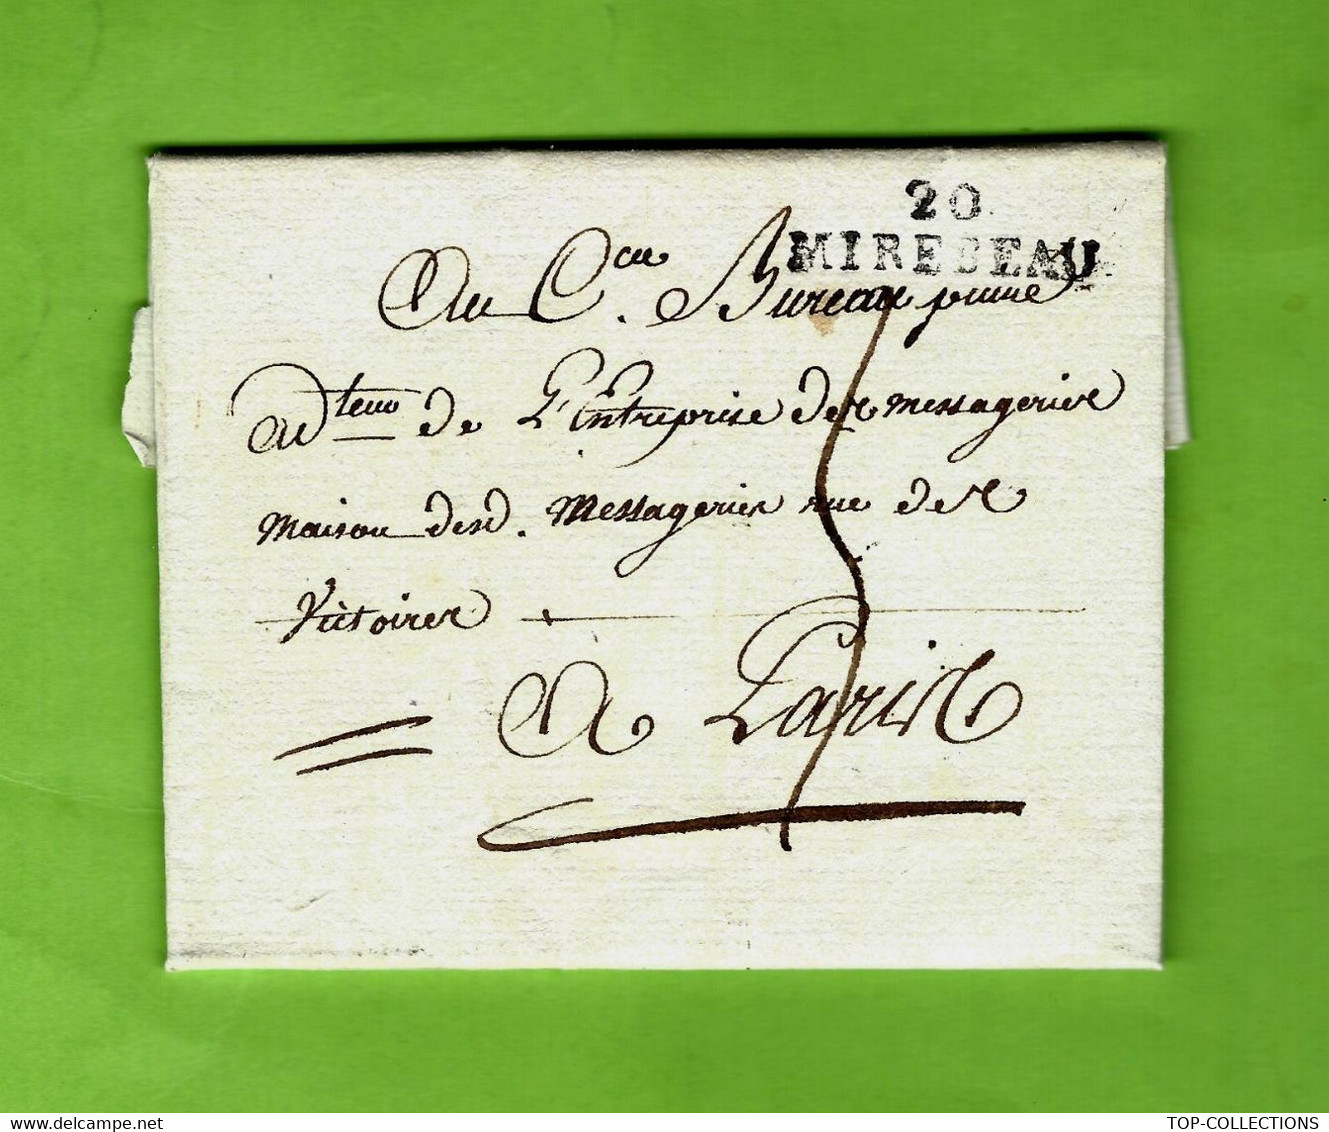 20
MIREBEAU
Au C.en Bureau jeune
Adteur de L'Entreprise des messageries
maison desd. Messageries rue des
Victoires
A Paris
5
delcampe.net
TOP-COLLECTIONS